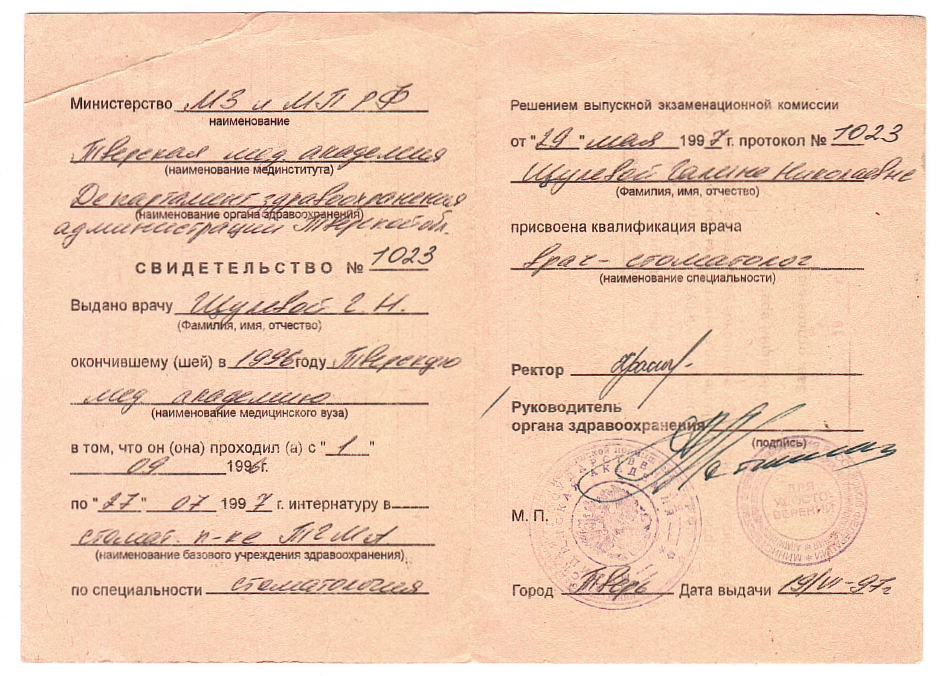 Министерство МЗ и МП РФ
наименование
Тверская мед. академия
(наименование мединститута)
Департамент здравоохранения
(наименование органа здравоохранения)
администрации Тверской обл.
СВИДЕТЕЛЬСТВО № 1023
Выдано врачу Щулевой Г. Н.
(Фамилия, имя, отчество)
окончившему (шей) в 1996 году Тверскую
мед академию
(наименование медицинского вуза)
в том, что он (она) проходил (а) с "1"
09 1996г.
по "27" 07 1997 г. интернатуру в
стомат. п-ке ТГМА
(наименование базового учреждения здравоохранения)
по специальности стоматология
Решением выпускной экзаменационной комиссии
от "29" мая 1997 г. протокол № 1023
Щулевой Галине Николаевне
(Фамилия, имя, отчество)
присвоена квалификация врача
врач-стоматолог
(наименование специальности)
Ректор
Руководитель
органа здравоохранения
(подпись)
М. П.
ДЛЯ
УДОСТО-
ВЕРЕНИЙ
Город Тверь Дата выдачи 19/VI-97г